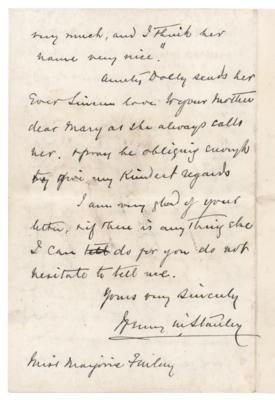 very much, and I think her
name very nice."
Aunty Dolly sends her
Ever Sincere love to your Mother
dear Mary as she always calls
her. & pray be obliging enough
to give my kindest regards
I am very glad of your
letter, & if there is anything else
I can do for you do not
hesitate to tell me.
Yours very sincerely
Henry M Stanley
Miss Marjorie Finlay